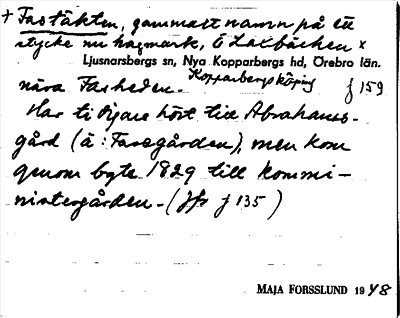 + Fastäkten, gammalt namn på ett
stycke nu hagmark, Ö Laxbäcken x
Ljusnarsbergs sn, Nya Kopparbergs hd, Örebro län.
Kopparbergs köping
nära Fasheden. f 159
Har tidigare hört till Abrahams-
gård (ä: Fasegården), men kom
genom byte 1829 till Kommi-
nistergården - (Jfr f 135)
MAJA FORSSLUND 1948